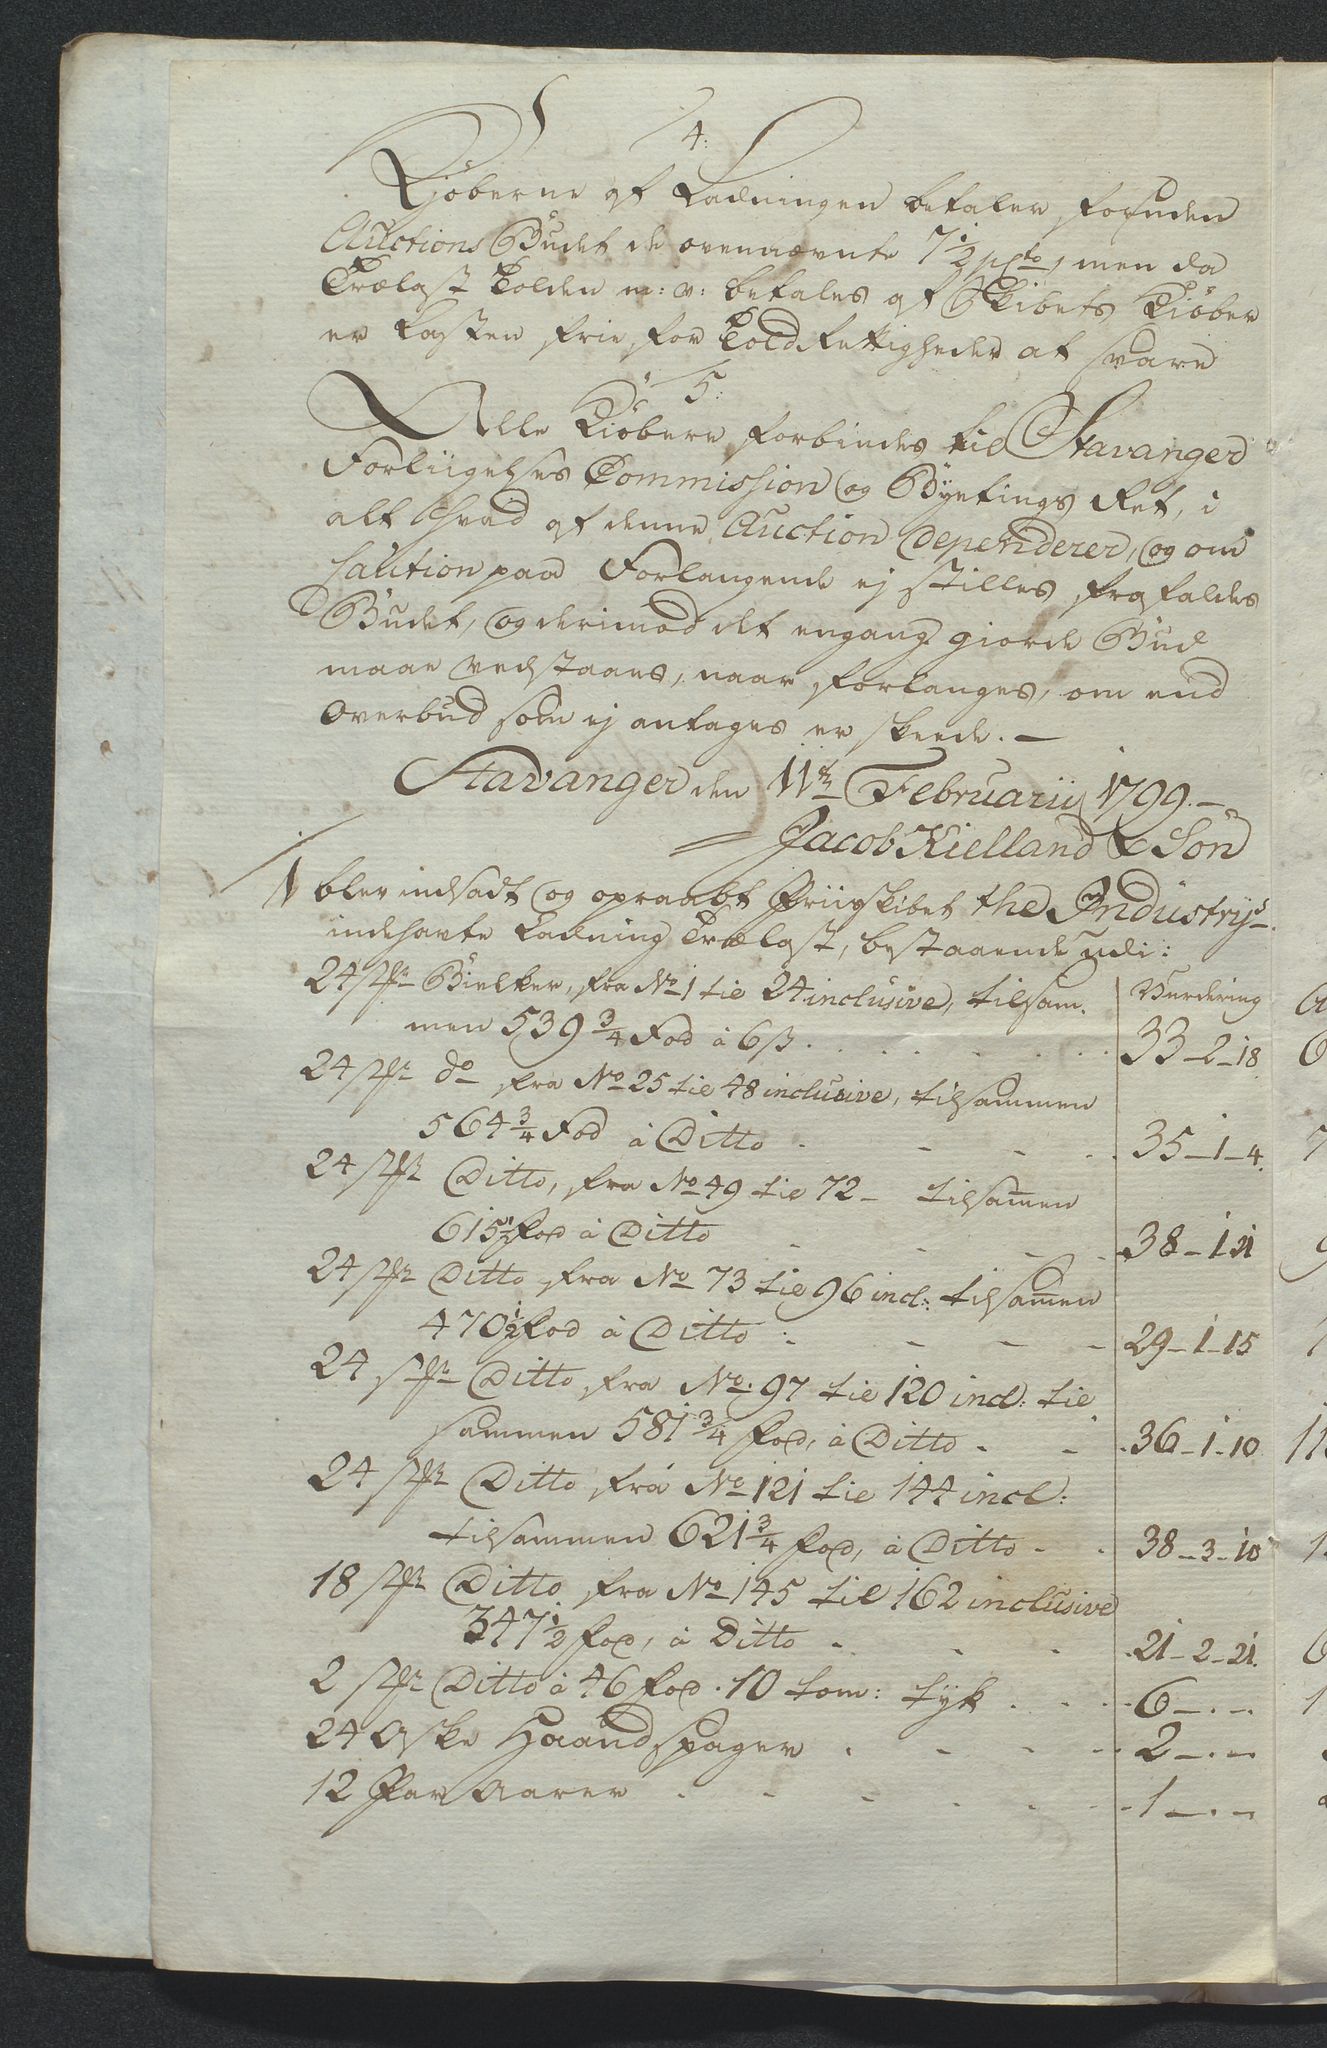 4:
Kjøberne af Ladningen betaler foruden
Auctions Budet de ovennævnte 7½ pCto, men da
Trælast Tolden m: v: betales af Skibets Kiøber
er Lasten frie for Told Rettigheder at svare
5:
Alle Kiøbere forbindes til Stavanger
Forliigelses Commission og Bÿetings Ret, i
alt hvad af denne Auction dependerer, og om
Caution paa Forlangende ej stilles frafaldes
Budet, og derimod det engang giorde Bud
maae vedstaaes, naar forlanges, om end
Overbud som ej antages er skeede. —
Stavanger den 11te Februarii 1799. —
Jacob Kielland & Søn
1 blev indsadt og opraabt Priisskibet the Industrys
indehavte Ladning Trælast, bestaaende udi:
24 st Bielker, fra No 1 til 24 inclusive, tilsam- Vurdering
men 539¾ Fod à 6 ß . . . 33 - 2 - 18
24 st do fra No 25 til 48 inclusive, tilsammen
564¾ Fod à Ditto - - - 35 - 1 - 4.
24 st Ditto, fra No 49 til 72 - tilsamen
615½ Fod à Ditto - - - 38 - 1 - 21
24 st Ditto fra No 73 til 96 incl: tilsamen
470½ Fod à Ditto - - - 29 - 1 - 15
24 st Ditto fra No. 97 til 120 incl: til
sammen 581¾ Fod, à Ditto - - 36 - 1 - 10
24 st Ditto fra No 121 til 144 incl:
tilsammen 621¾ Fod, à Ditto - - 38 - 3 - 10
18 st Ditto fra No 145 til 162 inclusive
347½ Fod, à Ditto - - - 21 - 2 - 21.
2 st Ditto à 46 Fod . 10 Tom: tyk . . . 6 - . -
24 Aske Haandspager . - - - 2 - . -
12 Par Aarer . - - - 1 - . -